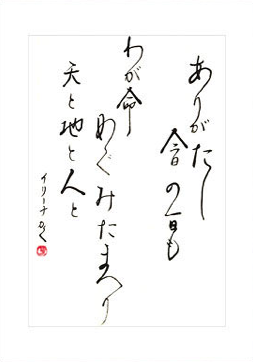 ありがたし
今日の一日も
わが命
めぐみたまへり
天と地と人と
イリーナかく